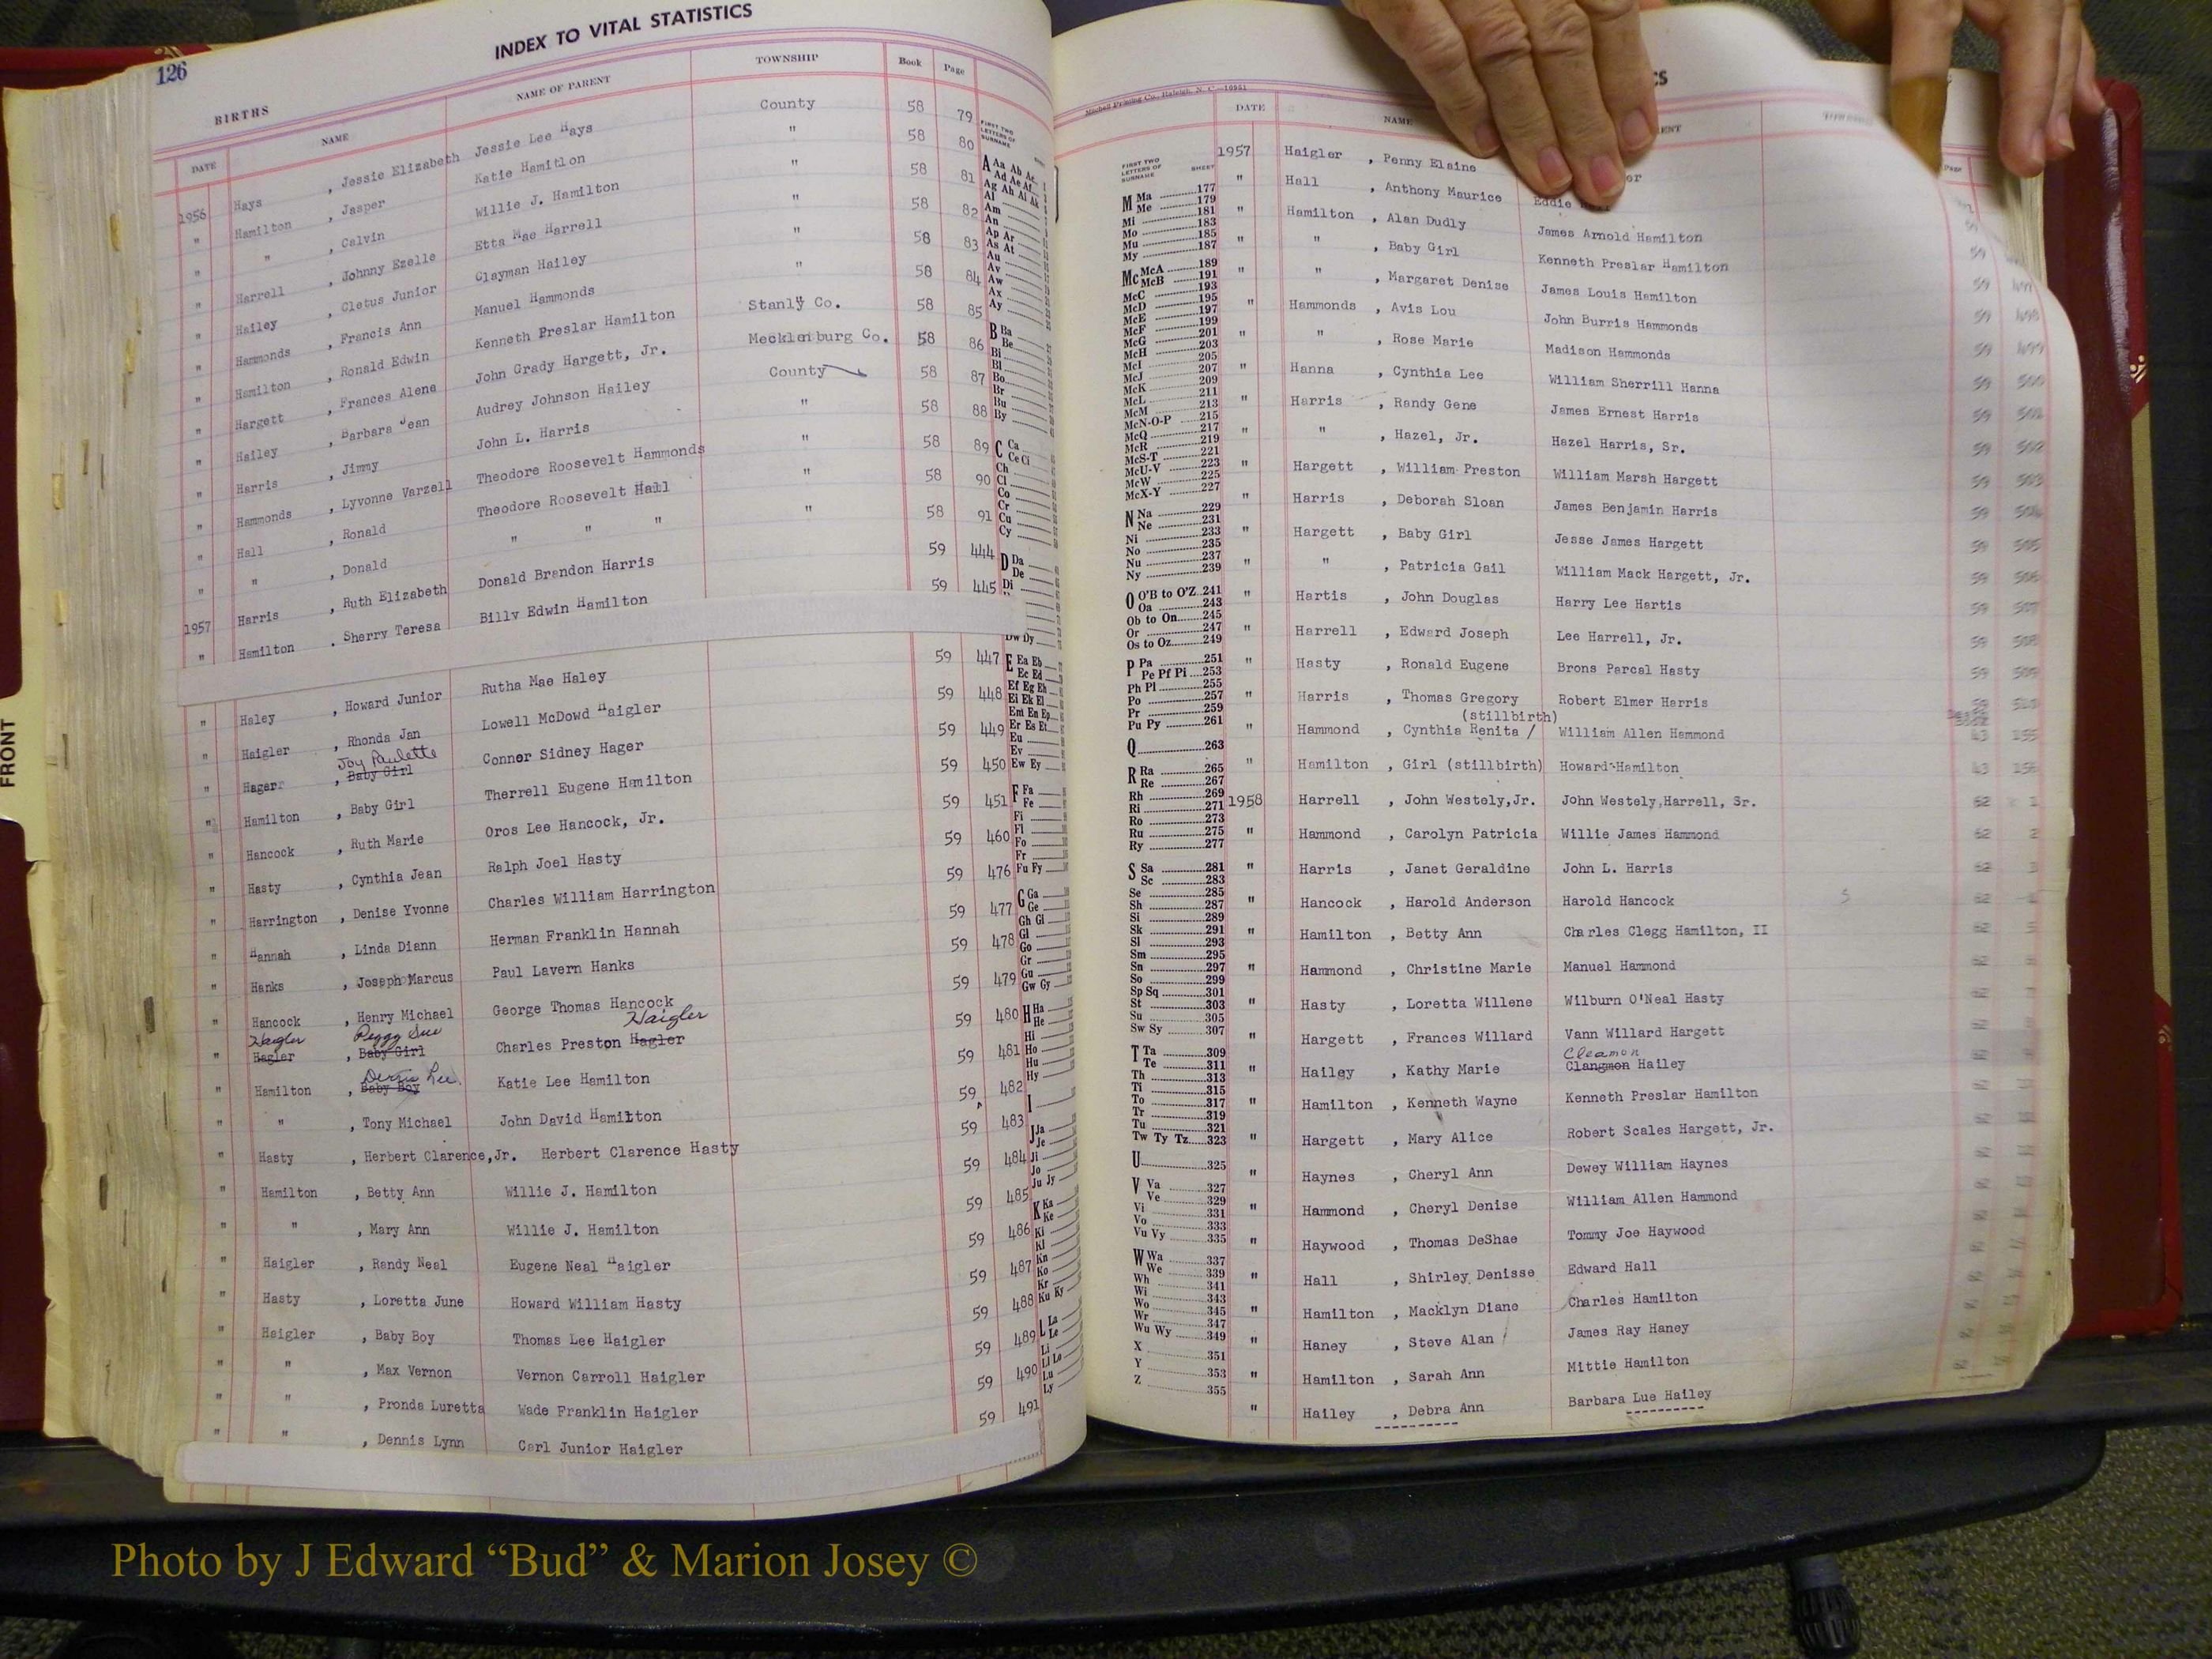 126
INDEX TO VITAL STATISTICS
BIRTHS
DATE NAME NAME OF PARENT TOWNSHIP Book Page
1956 Hays , Jessie Elizabeth Jessie Lee Hays County 58 79
" Hamilton , Jasper Katie Hamitlon " 58 80
" " , Calvin Willie J. Hamilton " 58 81
" Harrell , Johnny Ezelle Etta Mae Harrell " 58 82
" Hailey , Cletus Junior Clayman Hailey " 58 83
" Hammonds , Francis Ann Manuel Hammonds " 58 84
" Hamilton , Ronald Edwin Kenneth Preslar Hamilton Stanly Co. 58 85
" Hargett , Frances Alene John Grady Hargett, Jr. Mecklenburg Co. 58 86
" Hailey , Barbara Jean Audrey Johnson Hailey County 58 87
" Harris , Jimmy John L. Harris " 58 88
" Hammonds , Lyvonne Varzell Theodore Roosevelt Hammonds " 58 89
" Hall , Ronald Theodore Roosevelt Hall " 58 90
" " , Donald " " " 58 91
1957 Harris , Ruth Elizabeth Donald Brandon Harris 59 444
" Hamilton . Sherry Teresa Billy Edwin Hamilton 59 445
" Haley , Howard Junior Rutha Mae Haley 59 447
" Haigler , Rhonda Jan Lowell McDowd Haigler 59 448
Joy Paulette
" Hager , Baby Girl Connor Sidney Hager 59 449
" Hamilton , Baby Girl Therrell Eugene Hamilton 59 450
" Hancock , Ruth Marie Oros Lee Hancock, Jr. 59 451
" Hasty , Cynthia Jean Ralph Joel Hasty 59 460
" Harrington , Denise Yvonne Charles William Harrington 59 476
" Hannah , Linda Diann Herman Franklin Hannah 59 477
" Hanks , Joseph Marcus Paul Lavern Hanks 59 478
" Hancock , Henry Michael George Thomas Hancock 59 479
Haigler Peggy Sue Haigler
" Hagler , Baby Girl Charles Preston Hagler 59 480
Lee
" Hamilton , Baby Boy Katie Lee Hamilton 59 481
" " , Tony Michael John David Hamilton 59 482
" Hasty , Herbert Clarence, Jr. Herbert Clarence Hasty 59 483
" Hamilton , Betty Ann Willie J. Hamilton 59 484
" " , Mary Ann Willie J. Hamilton 59 485
" Haigler , Randy Neal Eugene Neal Haigler 59 486
" Hasty , Loretta June Howard William Hasty 59 487
" Haigler , Baby Boy Thomas Lee Haigler 59 488
" " , Max Vernon Vernon Carroll Haigler 59 489
" " , Pronda Luretta Wade Franklin Haigler 59 490
" " , Dennis Lynn Carl Junior Haigler 59 491
FIRST TWO LETTERS OF SURNAME
A Aa Ab Ac
Ad Ae Af
Ag Ah Ai Ak
Al
Am
An
Ap Ar
As At
Au
Av
Aw
Ax
Ay
B Ba
Be
Bi
Bl
Bo
Br
Bu
By
C Ca
Ce Ci
Ch
Cl
Co
Cr
Cu
Cy
D Da
De
Di
Dw Dy
E Ea Eb
Ec Ed
Ef Eg Eh
Ei Ek El
Em En Ep
Er Es Et
Eu
Ev
Ew Ey
F Fa
Fe
Fi
Fl
Fo
Fr
Fu Fy
G Ga
Ge
Gh Gi
Gl
Go
Gr
Gu
Gw Gy
H Ha
He
Hi
Ho
Hu
Hy
I
J Ja
Je
Ji
Jo
Ju Jy
K Ka
Ke
Ki
Kl
Kn
Ko
Kr
Ku Ky
L La
Le
Li
Ll Lo
Lu
Ly
FRONT
Mitchell Printing Co., Raleigh, N. C.—10951
FIRST TWO LETTERS OF SURNAME SHEET
M Ma 177
Me 179
Mi 181
Mo 183
Mu 185
My 187
Mc McA 189
McB 191
McC 193
McD 195
McE 197
McF 199
McG 201
McH 203
McI 205
McJ 207
McK 209
McL 211
McM 213
McN-O-P 215
McQ 217
McR 219
McS-T 221
McU-V 223
McW 225
McX-Y 227
N Na 229
Ne 231
Ni 233
No 235
Nu 237
Ny 239
O O'B to O'Z 241
Oa 243
Ob to On 245
Or 247
Os to Oz 249
P Pa 251
Pe Pf Pi 253
Ph Pl 255
Po 257
Pr 259
Pu Py 261
Q 263
R Ra 265
Re 267
Rh 269
Ri 271
Ro 273
Ru 275
Ry 277
S Sa 281
Sc 283
Se 285
Sh 287
Si 289
Sk 291
Sl 293
Sm 295
Sn 297
So 299
Sp Sq 301
St 303
Su 305
Sw Sy 307
T Ta 309
Te 311
Th 313
Ti 315
To 317
Tr 319
Tu 321
Tw Ty Tz 323
U 325
V Va 327
Ve 329
Vi 331
Vo 333
Vu Vy 335
W Wa 337
We 339
Wh 341
Wi 343
Wo 345
Wr 347
Wu Wy 349
X 351
Y 353
Z 355
DATE NAME Page
1957 Haigler , Penny Elaine
" Hall , Anthony Maurice Eddie
" Hamilton , Alan Dudly James Arnold Hamilton
" " , Baby Girl Kenneth Preslar Hamilton
" " , Margaret Denise James Louis Hamilton
" Hammonds , Avis Lou John Burris Hammonds
" " , Rose Marie Madison Hammonds
" Hanna , Cynthia Lee William Sherrill Hanna
" Harris , Randy Gene James Ernest Harris
" " , Hazel, Jr. Hazel Harris, Sr.
" Hargett , William Preston William Marsh Hargett
" Harris , Deborah Sloan James Benjamin Harris
" Hargett , Baby Girl Jesse James Hargett
" " , Patricia Gail William Mack Hargett, Jr.
" Hartis , John Douglas Harry Lee Hartis
" Harrell , Edward Joseph Lee Harrell, Jr.
" Hasty , Ronald Eugene Brons Parcal Hasty
" Harris , Thomas Gregory Robert Elmer Harris
(stillbirth)
" Hammond , Cynthia Renita / William Allen Hammond 43 155
" Hamilton , Girl (stillbirth) Howard Hamilton 43 156
1958 Harrell , John Westely, Jr. John Westely, Harrell, Sr. 62 1
" Hammond , Carolyn Patricia Willie James Hammond 62 2
" Harris , Janet Geraldine John L. Harris 62 3
" Hancock , Harold Anderson Harold Hancock
" Hamilton , Betty Ann Charles Clegg Hamilton, II
" Hammond , Christine Marie Manuel Hammond
" Hasty , Loretta Willene Wilburn O'Neal Hasty
" Hargett , Frances Willard Vann Willard Hargett
Cleamon
" Hailey , Kathy Marie Clangmon Hailey
" Hamilton , Kenneth Wayne Kenneth Preslar Hamilton
" Hargett , Mary Alice Robert Scales Hargett, Jr.
" Haynes , Cheryl Ann Dewey William Haynes
" Hammond , Cheryl Denise William Allen Hammond
" Haywood , Thomas DeShae Tommy Joe Haywood
" Hall , Shirley Denisse Edward Hall
" Hamilton , Macklyn Diane Charles Hamilton
" Haney , Steve Alan James Ray Haney
" Hamilton , Sarah Ann Mittie Hamilton
" Hailey , Debra Ann Barbara Lue Hailey
Photo by J Edward “Bud” & Marion Josey ©